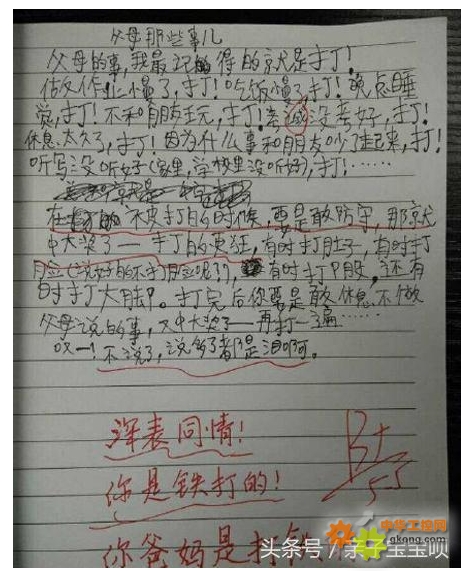 父母那些事儿
父母的事，我最记得的就是打！
做作业慢了，打！吃饭慢了，打！晚点睡
觉，打！不和朋友玩，打！考试没考好，打！
休息太久了，打！因为什么事和朋友吵了起来，打！
听写没听好（家里，学校里没听好），打！……
在 不皮打的时候，要是敢防守，那就
中大奖了——打的更狂，有时打肚子，有时打
脸（说好的不打脸呢？），有时打P股，还有
时打大脚。打完后你要是敢休息不做
父母说的事，又中大奖了——再打一遍……
哎——！不说了，说多了都是泪啊。
深表同情！
你是铁打的！
B+
你爸妈是打铁
中华工控网
gkong.com
头条号／亲子宝宝呗